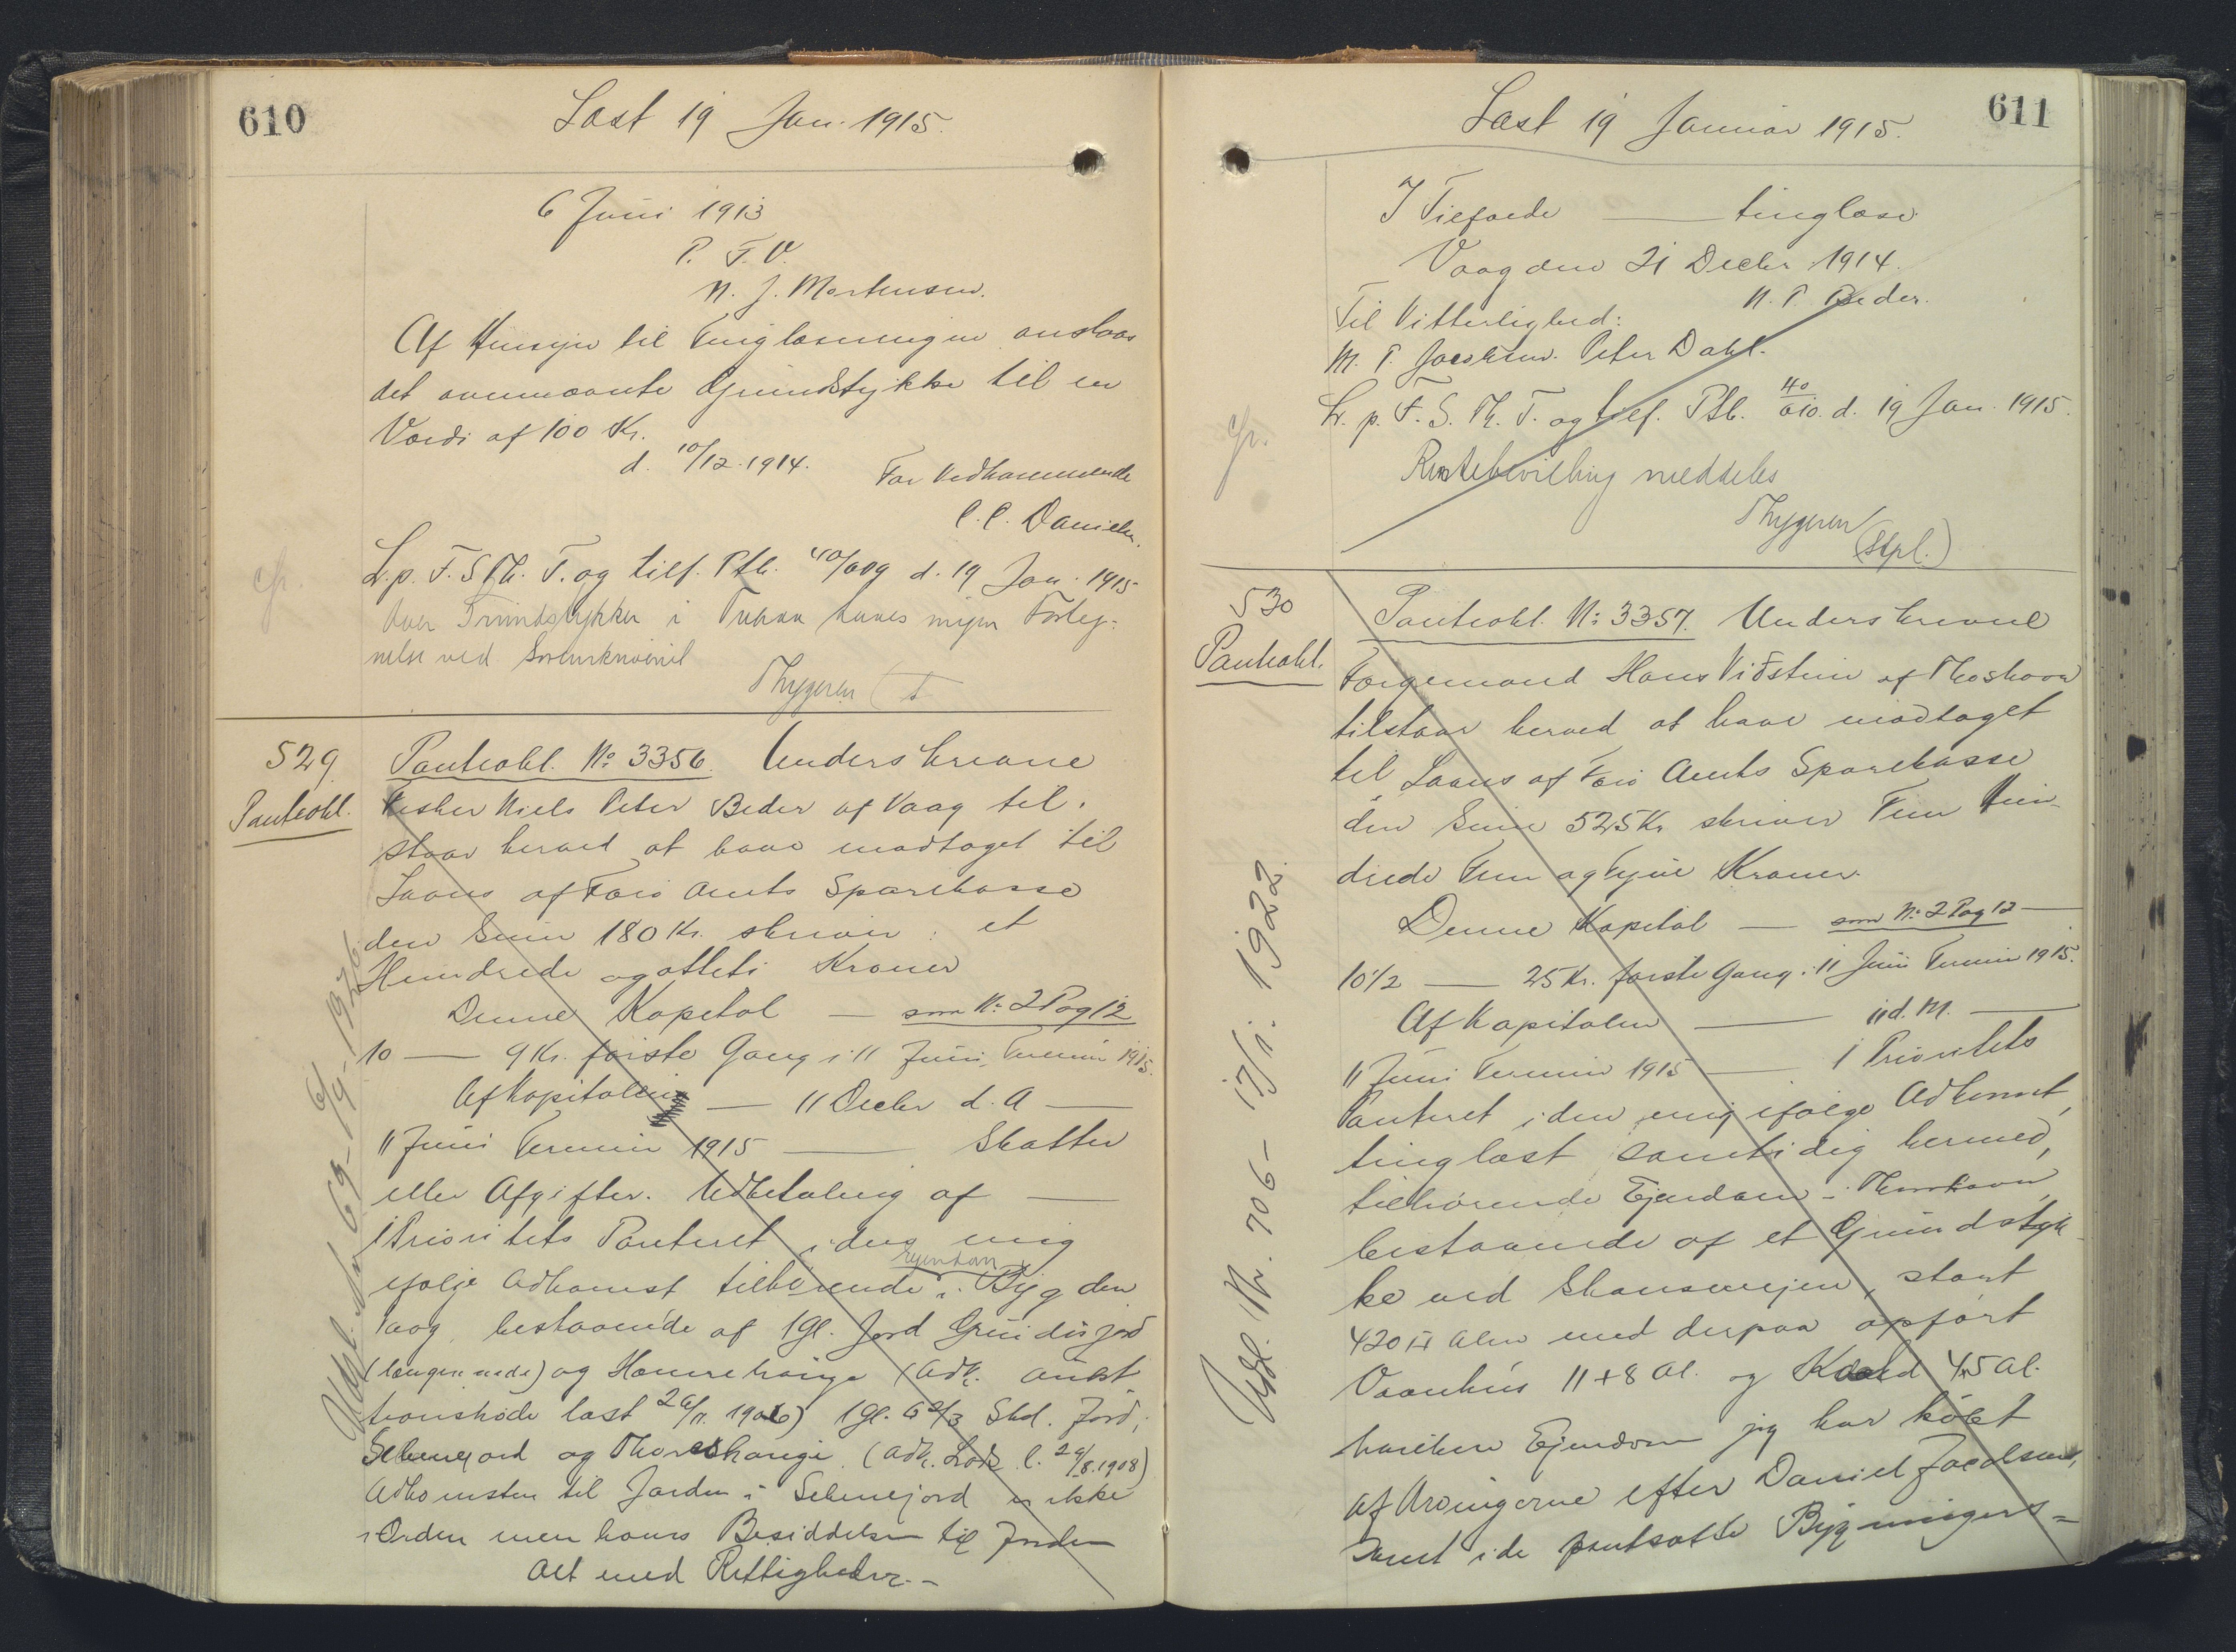 610
Læst 19 Jan. 1915.
6 Juni 1913
P. F. V.
N. J. Mortensen.
Af Hensyn til Tinglæsningen anslaas
det ovennævnte Grundstykke til en
Værdi af 100 Kr.
d. 10/12. 1914.
For Vedkommende
C. C. Danielsen.
L. p. F. S. Th. T. og tilf. Ptb. 40/009 d. 19 Jan. 1915
Over Grundstykker i haves ingen Forteg-
nelse ved Sorenskriveriet
Thygesen
529
Panteobl.
Panteobl. No 3356. Underskrevne
Fisker Niels Peter Beder af Vaag til-
staar herved at have modtaget til
Laans af Færø Amts Sparekasse
den Sum 180 Kr. skriver: et
Hundrede og otteti Kroner
Denne Kapital — som No 2 Pag 12
10 — 9 Kr. første Gang i 11 Juni Termin 1915.
Af Kapitalen — 11 Decbr d. A —
11 Juni Termin 1915 — Skatter
eller Afgifter. Udbetaling af —
1 Prioritets Panteret i den mig
Ejendom
ifølge Adkomst tilhørende i Bygden
Vaag, bestaaende af 1 Gl. Jord
og Homrehauge (Adk. Aukt
tionsskøde læst 1906) 1 Gl. 6 2/3 Skd. Jord i
Selvnejord og (Adk. l. 29/8. 1908)
Adkomsten til Jorden i Selvnejord er ikke
i Orden men haves Besiddelsen til Jorden
Alt med Rettigheder. –
Udsl. Nr 69 – 1926.
611
Læst 19 Januar 1915.
I Tilfælde — tinglæse
Vaag den 21 Decbr 1914.
N. P. Beder.
Til Vitterlighed:
M. P. Joensen. Peter Dahl.
L. p. F. S. Th. T. og tilf. Ptb. 40/010. d. 19 Jan. 1915.
Rentebevilling meddeles
Thygesen
(Stpl.)
530
Panteobl.
Panteobl. No 3357. Underskrevne
Færgemand Hans Viðstein af Thorshavn
tilstaar herved at have modtaget
til Laans af Færø Amts Sparekasse
den Sum 525 Kr skriver Fem Hun-
drede Fem og Tyve Kroner.
Denne Kapital — som No 2 Pag 12 —
10 1/2 — 25 Kr. første Gang i 11 Juni Termin 1915.
Af Kapitalen — d. M. —
11 Juni Termin 1915 — 1 Prioritets
Panteret i den mig ifølge Adkomst,
tinglæst samtidig hermed,
tilhørende Ejendom i Thorshavn,
bestaaende af et Grundstyk
ke ved Skansevejen, stort
420 □ Alen med derpaa opført
Vaanhus 11+8 Al. og 4+5 Al.
hvilken Ejendom jeg har købt
af Arvingerne efter Daniel Jacobsen,
samt i de pantsatte Bygningers=
Udsl. Nr. 706 – 17/1. 1922.